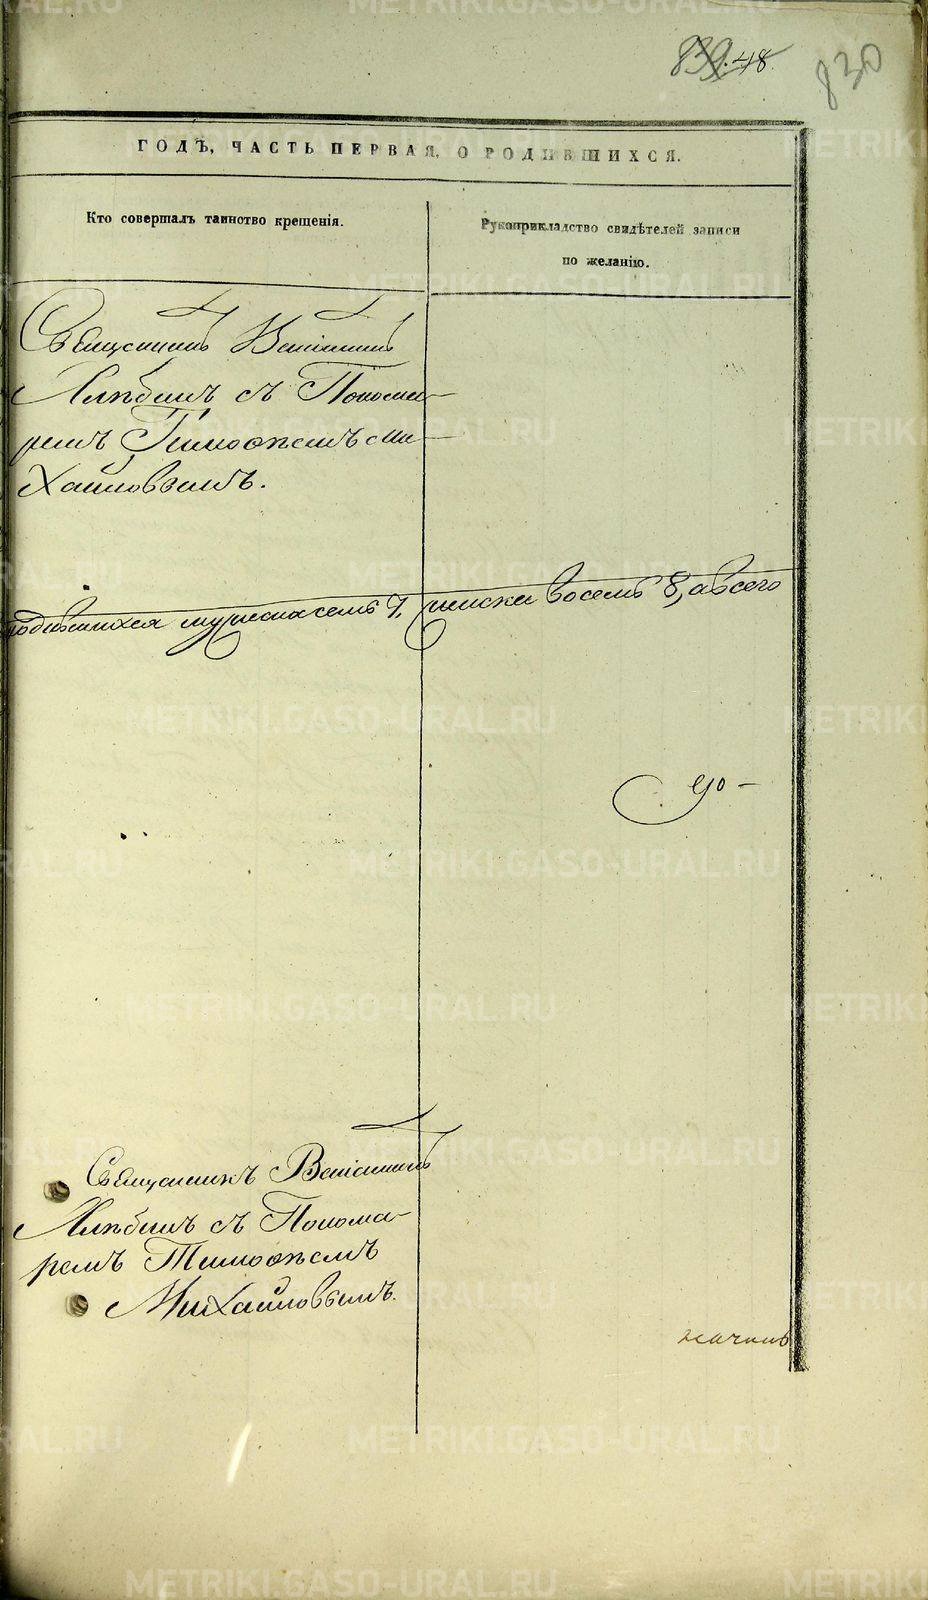 839. 48
830
ГОДЪ, ЧАСТЬ ПЕРВАЯ, О РОДИВШИХСЯ.
Кто совершалъ таинство крещенія.
Рукоприкладство свидѣтелей записи
по желанію.
Священникъ Веніаминъ
Хлѣбинъ съ Понома-
ремъ Тимоѳеемъ Ми-
хайловымъ.
родившихся мужеска семь 7, женска восемь 8, а всего
Священникъ Веніаминъ
Хлѣбинъ съ Понома-
ремъ Тимоѳеемъ
Михайловымъ.
METRIKI.GASO-URAL.RU